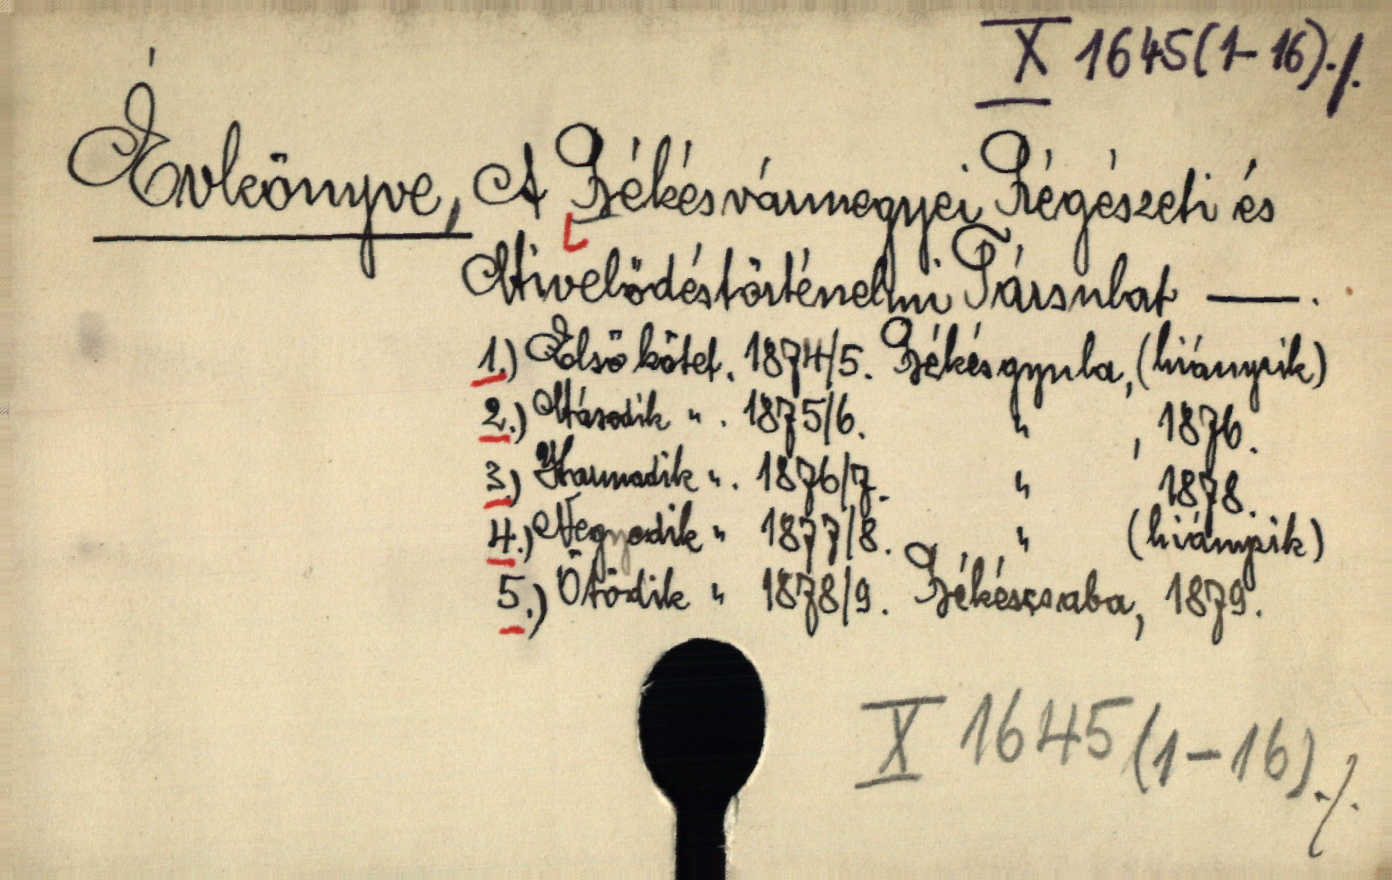 X 1645 (1-16)./.
Évkönyve, A Békésvármegyei Régészeti és
Mivelödéstörténelmi Társulat —.
1.) Első kötet. 1874/5. Békésgyula, (hiányzik)
2.) Második ". 1875/6. " , 1876.
3.) Harmadik ". 1876/7. " 1878.
4.) Negyedik " 1877/8. " (hiányzik)
5.) Ötödik " 1878/9. Békéscsaba, 1879.
X 1645 (1-16)./.